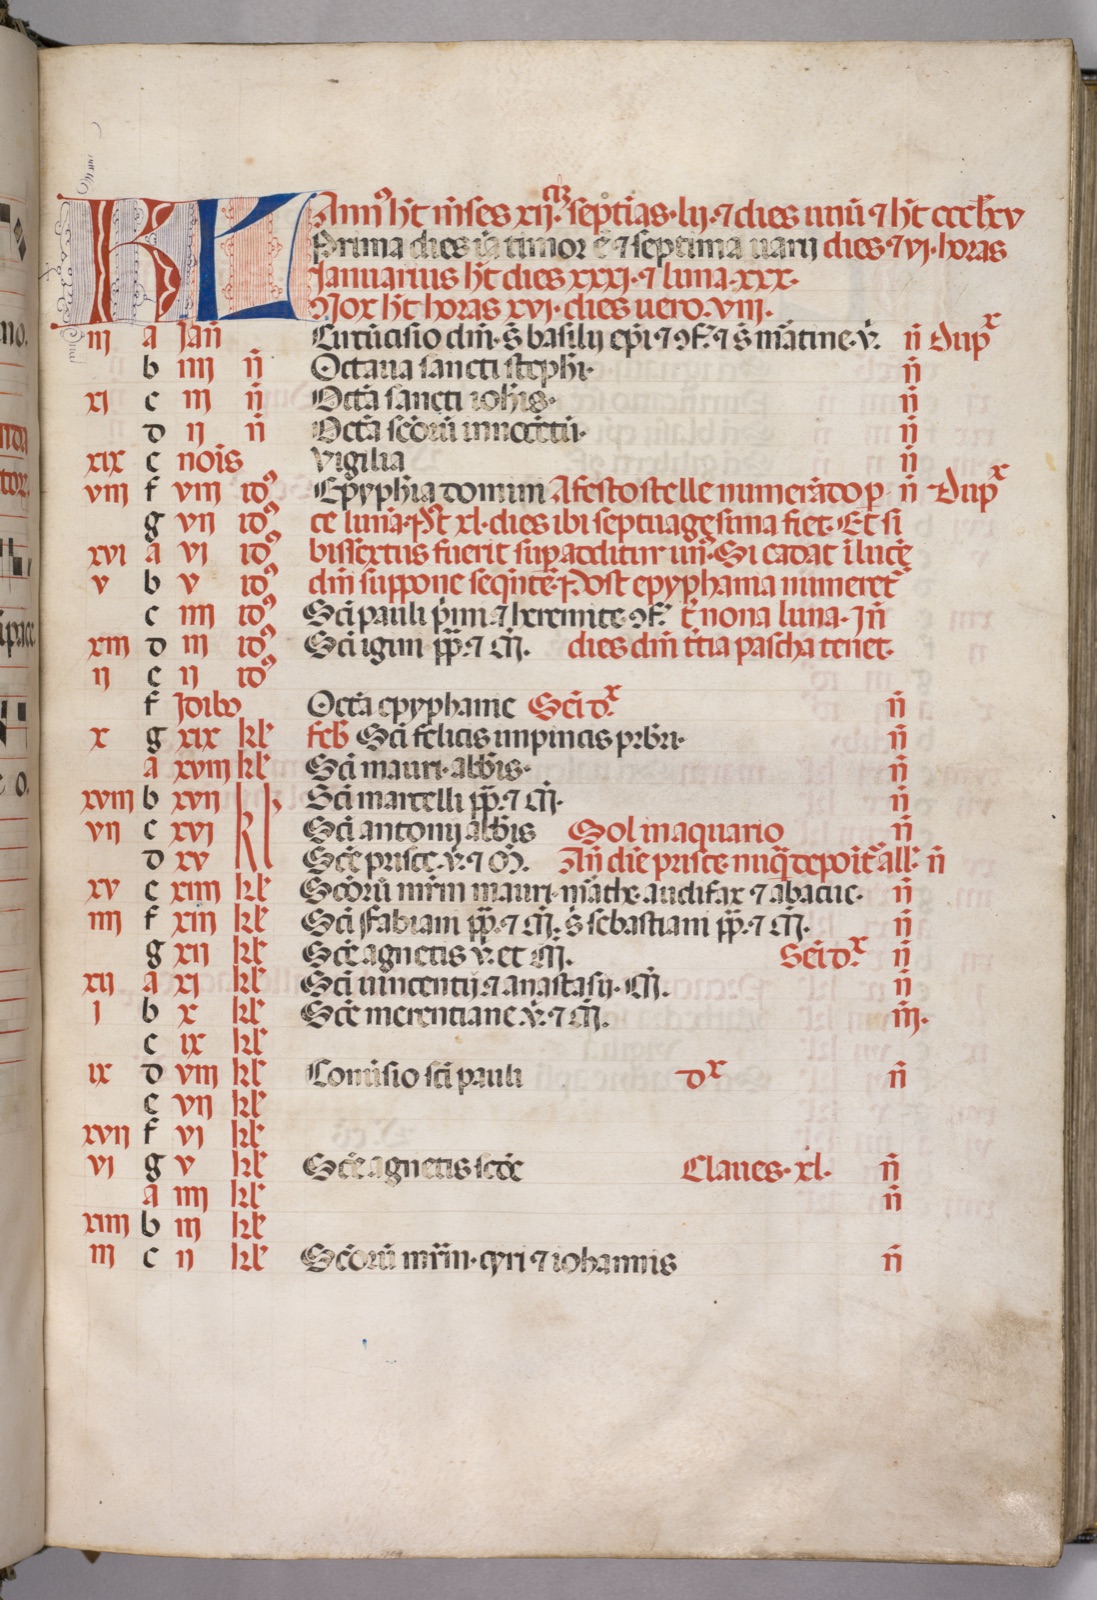 KL Annꝰ hꝫt mēses xij. septīas. lij. ⁊ dies unū ⁊ hꝫt ccclxv
Prima dies iā timor ē ⁊ septima uani dies ⁊ vj. horas
Januarius hꝫt dies xxxj. ⁊ luna. xxx.
Nox hꝫt horas xvj. dies uero. viij.
iij a Jan̄ Circūcisio dn̄i. s̄ basilij ep̄i ⁊ ɔf. ⁊ s̄ m̄atine. v̄. n̄ Dupˣ
b iiij n̄ Octaua sancti steph̄i. n̄
xi c iij n̄ Octā sancti ioh̄is. n̄
d ii n̄ Octā sc̄orū innocētū. n̄
xix e nōis vigilia n̄
viij f viij idꝰ Epyph̄ia domini A festo stelle numerādo p n̄ Dupˣ
g vij idꝰ te lunā. Pꝰt xl. dies ibi septuagesima fiet. Et si
xvi a vi idꝰ bissextus fuerit sup additur un̄. Si cadat ī luce
v b v idꝰ dn̄i suppone seq̄nte. Post epyphania numeret
c iiij idꝰ Sc̄i pauli p̄mi ⁊ heremite. ɔf. t̄ nona luna. Jn̄
xiij d iij idꝰ Sc̄i igini pp̄. ⁊ m̄. dies dn̄i t̄tia pascha tenet.
ij e ij idꝰ
f Jdibꝰ Octā epyphanie Sēidˣ n̄
x g xix kl̄ feb̄ Sc̄i felicis inpincis prb̄ri. n̄
a xviij kl̄ Sc̄i mauri. abb̄is. n̄
xviij b xvij kl̄ Sc̄i martelli pp̄. ⁊ m̄. n̄
vij c xvi kl̄ Sc̄i antonij abb̄is Sol in aquario n̄
d xv kl̄ Sc̄e prisce. v̄. ⁊ m̄. An̄ diē prisce nūq̄ depoīt all̄. n̄
xv e xiiij kl̄ Sc̄orū mr̄m mauri. m̄athe. audifax ⁊ abacuc. n̄
iiij f xiij kl̄ Sc̄i fabiani pp̄. ⁊ m̄. s̄ sebastiani pp̄. ⁊ m̄. n̄
g xij kl̄ Sc̄e agnetis v̄. et m̄. Sēidˣ n̄
xij a xj kl̄ Sc̄i uincentij. ⁊ anastasij. m̄. n̄
j b x kl̄ Sc̄e merentiane. v̄. ⁊ m̄. iij.
c ix kl̄
ix d viij kl̄ Conūsio sc̄i pauli dˣ n̄
e vij kl̄
xvij f vi kl̄
vi g v kl̄ Sc̄e agnetis sēde Claues. xl. n̄
a iiij kl̄ n̄
xiiij b iij kl̄
iij c ij kl̄ Sc̄orū mr̄m. cyri ⁊ iohannis n̄